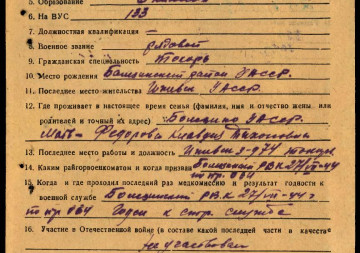 5. Образование
6. На ВУС 133
7. Должностная квалификация —
8. Военное звание рядовой
9. Гражданская специальность Токарь
10. Место рождения район УАССР.
11. Последнее место жительства Ижевск УАССР.
12. Где проживает в настоящее время семья (фамилия, имя и отчество жены или
родителей и точный их адрес) УАССР.
Мать — Федорова Клавдия
13. Последнее место работы и должность Ижевск з-д 74 токарь
14. Каким райгорвоенкоматом и когда призван РВК 27/VII-44
15. Когда и где проходил последний раз медкомиссию и результат годности к
военной службе РВК 27/VII-44 г
Годен к стр. службе
16. Участие в Отечественной войне (в составе какой последней части и качестве
не участвовал